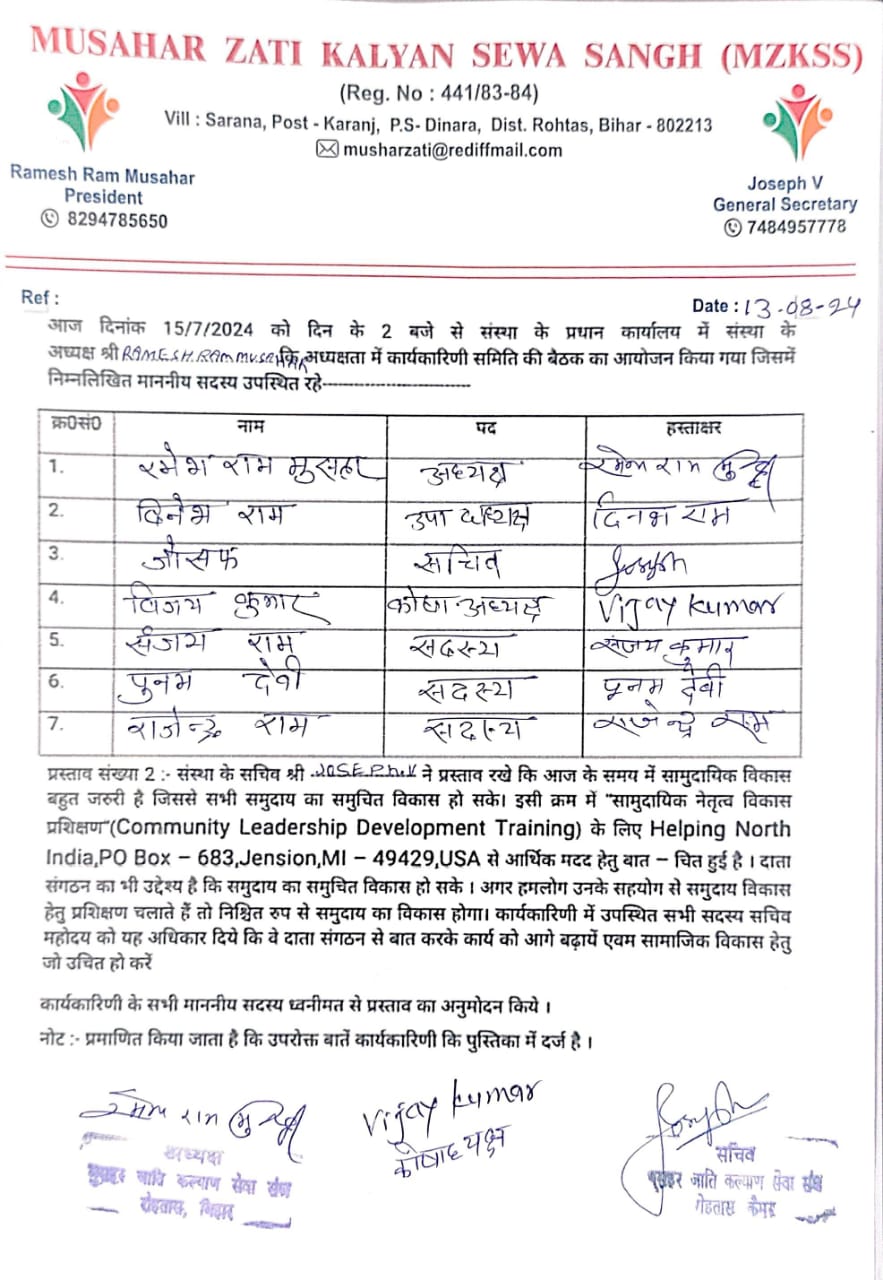 MUSAHAR ZATI KALYAN SEWA SANGH (MZKSS)
(Reg. No : 441/83-84)
Vill : Sarana, Post - Karanj, P.S- Dinara, Dist. Rohtas, Bihar - 802213
musharzati@rediffmail.com
Ramesh Ram Musahar
President
8294785650
Joseph V
General Secretary
7484957778
Ref :
Date : 13-08-24
आज दिनांक 15/7/2024 को दिन के 2 बजे से संस्था के प्रधान कार्यालय में संस्था के
अध्यक्ष श्री RAMESH.RAM MUSAHAR कि अध्यक्षता में कार्यकारिणी समिति की बैठक का आयोजन किया गया जिसमें
निम्नलिखित माननीय सदस्य उपस्थित रहे---------------------------
क्र0सं0 नाम पद हस्ताक्षर
1. रमेश राम मुसहर अध्यक्ष रमेश राम
2. दिनेश राम उपा ध्यक्ष दिनेश राम
3. जौसफ सचिव Joseph
4. विजय कुमार कोषा अध्यक्ष Vijay Kumar
5. संजय राम सदस्य संजय कुमार
6. पुनम देवी सदस्य पूनम देवी
7. राजेन्द्र राम सदस्य राजेन्द्र राम
प्रस्ताव संख्या 2 :- संस्था के सचिव श्री JOSEPH.V ने प्रस्ताव रखे कि आज के समय में सामुदायिक विकास
बहुत जरुरी है जिससे सभी समुदाय का समुचित विकास हो सके। इसी क्रम में "सामुदायिक नेतृत्व विकास
प्रशिक्षण"(Community Leadership Development Training) के लिए Helping North
India,PO Box – 683,Jension,MI – 49429,USA से आर्थिक मदद हेतु बात – चित हुई है । दाता
संगठन का भी उद्देश्य है कि समुदाय का समुचित विकास हो सके । अगर हमलोग उनके सहयोग से समुदाय विकास
हेतु प्रशिक्षण चलाते हैं तो निश्चित रुप से समुदाय का विकास होगा। कार्यकारिणी में उपस्थित सभी सदस्य सचिव
महोदय को यह अधिकार दिये कि वे दाता संगठन से बात करके कार्य को आगे बढ़ायें एवम सामाजिक विकास हेतु
जो उचित हो करें
कार्यकारिणी के सभी माननीय सदस्य ध्वनीमत से प्रस्ताव का अनुमोदन किये ।
नोट :- प्रमाणित किया जाता है कि उपरोक्त बातें कार्यकारिणी कि पुस्तिका में दर्ज है ।
रमेश राम
Vijay Kumar
कोषाध्यक्ष
Joseph
अध्यक्ष
मुसहर जाति कल्याण सेवा संघ
रोहतास, बिहार
सचिव
मुसहर जाति कल्याण सेवा संघ
रोहतास कैमुर